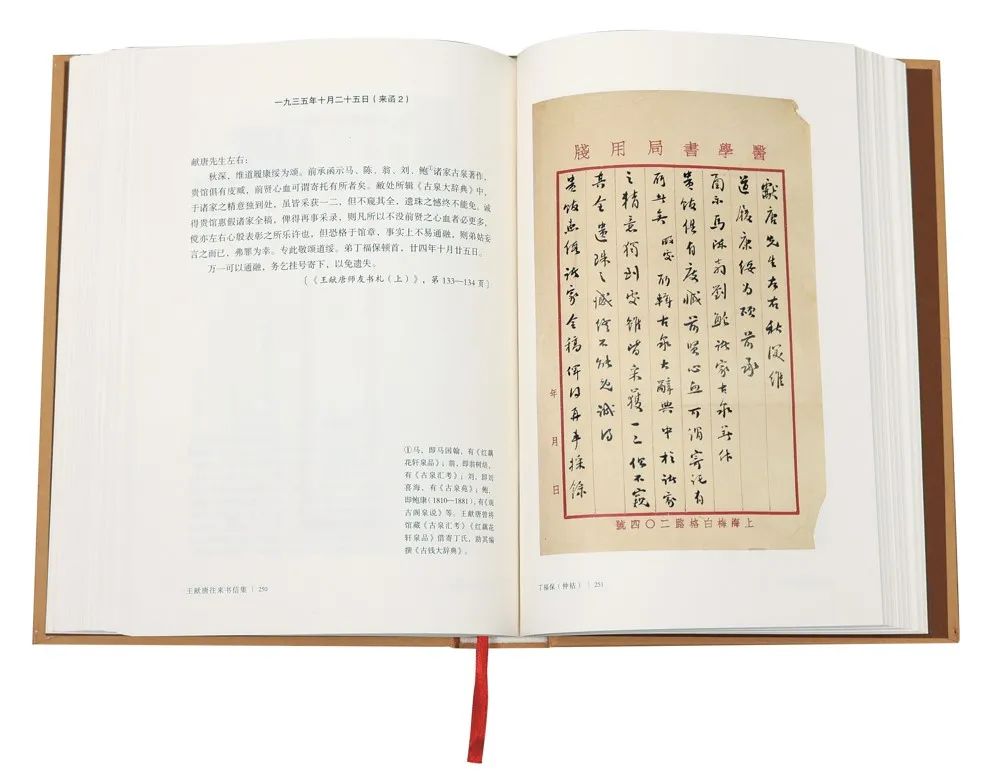 一九三五年十月二十五日（来函2）
献唐先生左右：
秋深，维道履康绥为颂。前承函示马、陈、翁、刘、鲍①诸家古泉著作，
贵馆俱有庋臧，前贤心血可谓寄托有所者矣。敝处所辑《古泉大辞典》中，
于诸家之精意独到处，虽皆采获一二，但不窥其全，遗珠之憾终不能免。诚
得贵馆惠假诸家全稿，俾得再事采录，则凡所以不没前贤之心血者必更多，
傥亦左右心殷表彰之所乐许也，但恐格于馆章，事实上不易通融，则弟姑妄
言之而已，弗罪为幸。专此敬颂道绥。弟丁福保顿首，廿四年十月廿五日。
万一可以通融，务乞挂号寄下，以免遗失。
〔《王献唐师友书札（上）》，第133—134页〕
①马，即马国翰，有《红藕
花轩泉品》；翁，即翁树培，
有《古泉汇考》；刘，即刘
喜海，有《古泉苑》；鲍，
即鲍康（1810—1881），有《观
古阁泉说》等。王献唐曾将
馆藏《古泉汇考》《红藕花
轩泉品》借寄丁氏，助其编
撰《古钱大辞典》。
王献唐往来书信集 | 250
醫學書局用牋
獻唐先生左右秋深維
道履康綏为頌前承
函示馬陳翁劉鮑諸家古泉著作
貴館俱有庋臧前贤心血可谓寄托有
所者矣敝处所輯古泉大辭典中於諸家
之精意獨到處雖皆采獲一二但不窺
其全遺珠之憾终不能免誠得
貴館惠假諸家全稿俾得再事採錄
年月日
上海梅白格路二〇四號
丁福保（仲祜） | 251